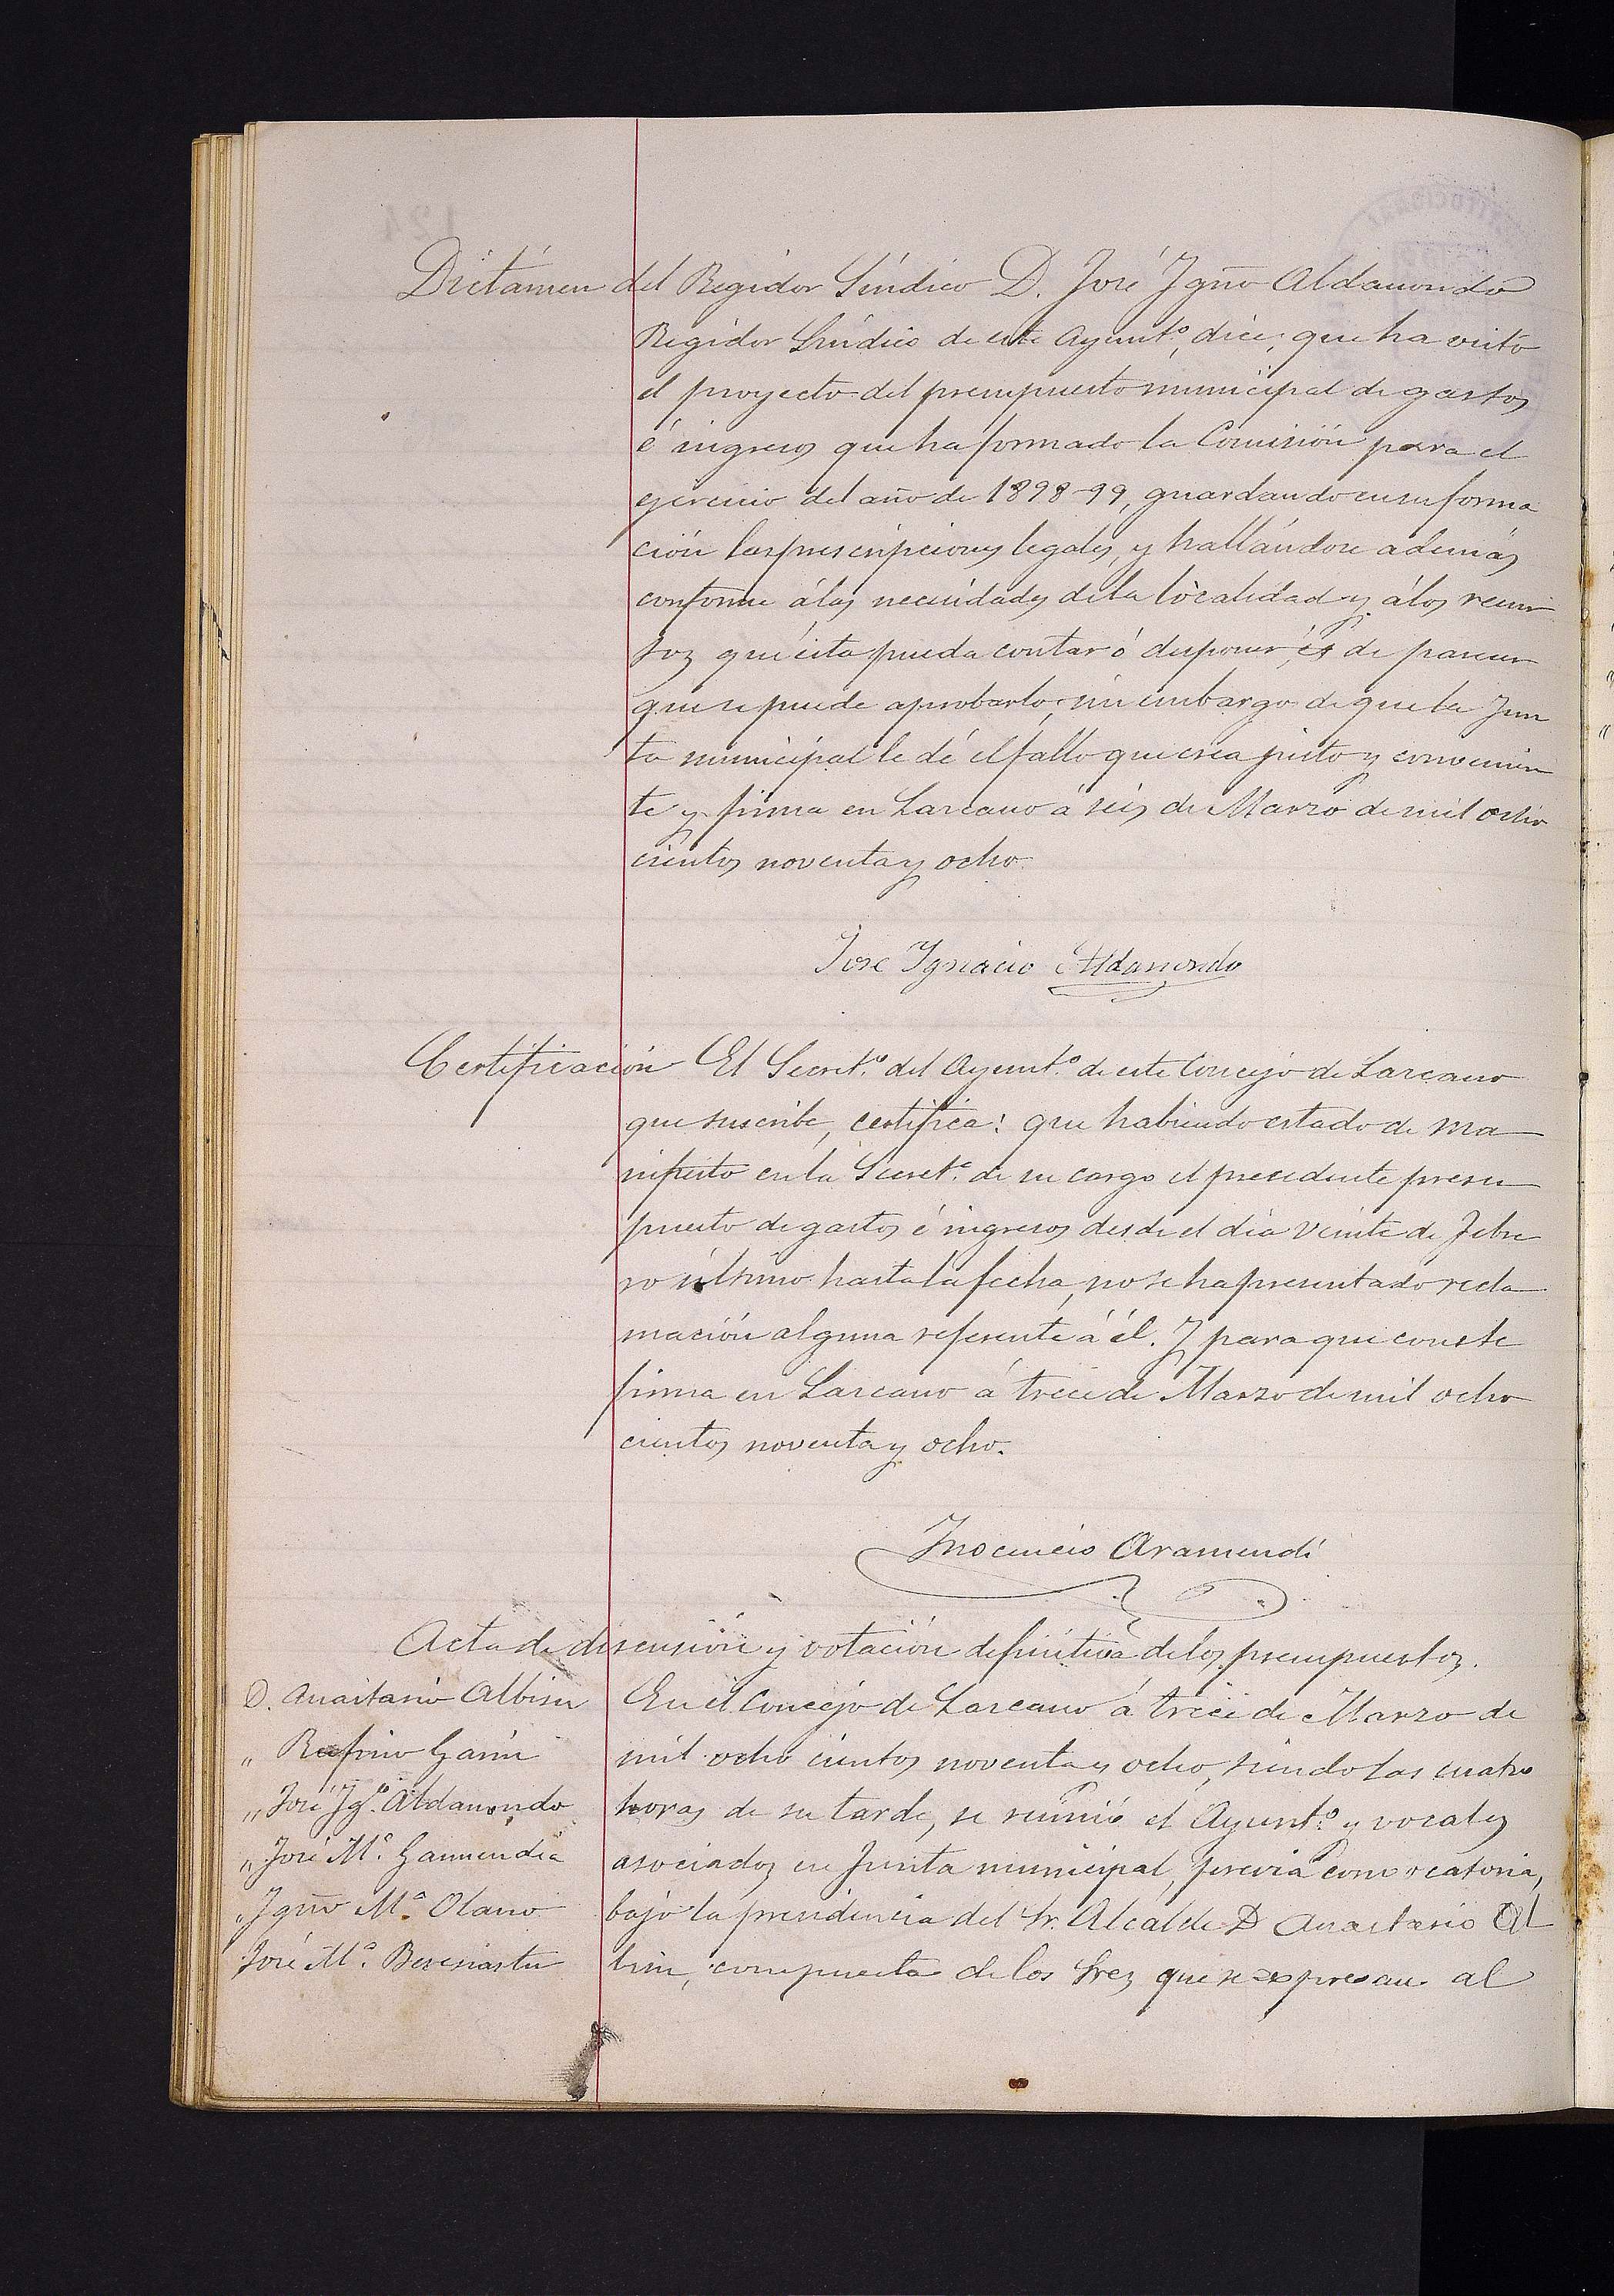 Dictámen del Regidor Síndico D. José Ygño Aldamondo
Regidor Síndico de este Ayunt.º, dice; que ha visto
el proyecto del presupuesto municipal de gastos
é ingresos que ha formado la Comisión para el
ejercicio del año de 1898-99, guardando en su forma
ción las prescripciones legales, y hallándose además
conforme á las necesidades de la localidad y á los recur
sos que ésta pueda contar ó disponer, es de parecer
que se puede aprobarlo, sin embargo de que la Jun
ta municipal le dé el fallo que crea justo y convenien
te y firma en Lazcano á seis de Marzo de mil ocho
cientos noventa y ocho.
José Ygnacio Aldamondo
Certificación El Secret.º del Ayunt.º de este Concejo de Lazcano
que suscribe, certifica: que habiendo estado de ma
nifiesto en la Secret.ª de su cargo el precedente presu
puesto de gastos é ingresos desde el día veinte de Febre
ro último hasta la fecha, no se ha presentado recla
mación alguna referente á él. Y para que conste
firma en Lazcano á trece de Marzo de mil ocho
cientos noventa y ocho.
Ynocencio Aramendi
Acta de discusión y votación definitiva de los presupuestos.
D. Anastasio Albisu
" Rufino Garin
" José Yg.º Aldamondo
" José M.ª Garmendia
" Ygño M.ª Olano
José M.ª Berasiartu
En el Concejo de Lazcano á trece de Marzo de
mil ocho cientos noventa y ocho, siendo las cuatro
horas de su tarde, se reunió el Ayunt.º y vocales
asociados en Junta municipal, previa convocatoria,
bajo la presidencia del Sr. Alcalde D Anastasio Al
bisu, compuesta de los Sres que se expresan al